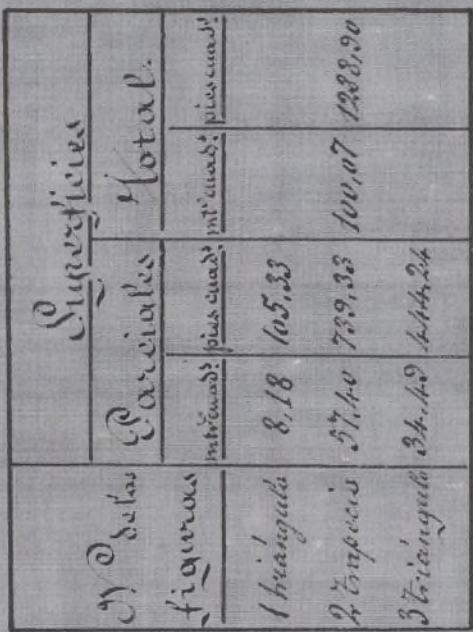 Nº de las figuras
Superficies
Parciales Total.
mtrˢcuadˢ pies cuadˢ mtrˢcuadˢ pies cuadˢ
1 triángulo 8,18 105,33
2 trapecio 57,40 739,33 100,07 1288,90
3 triángulo 34,49 444,24